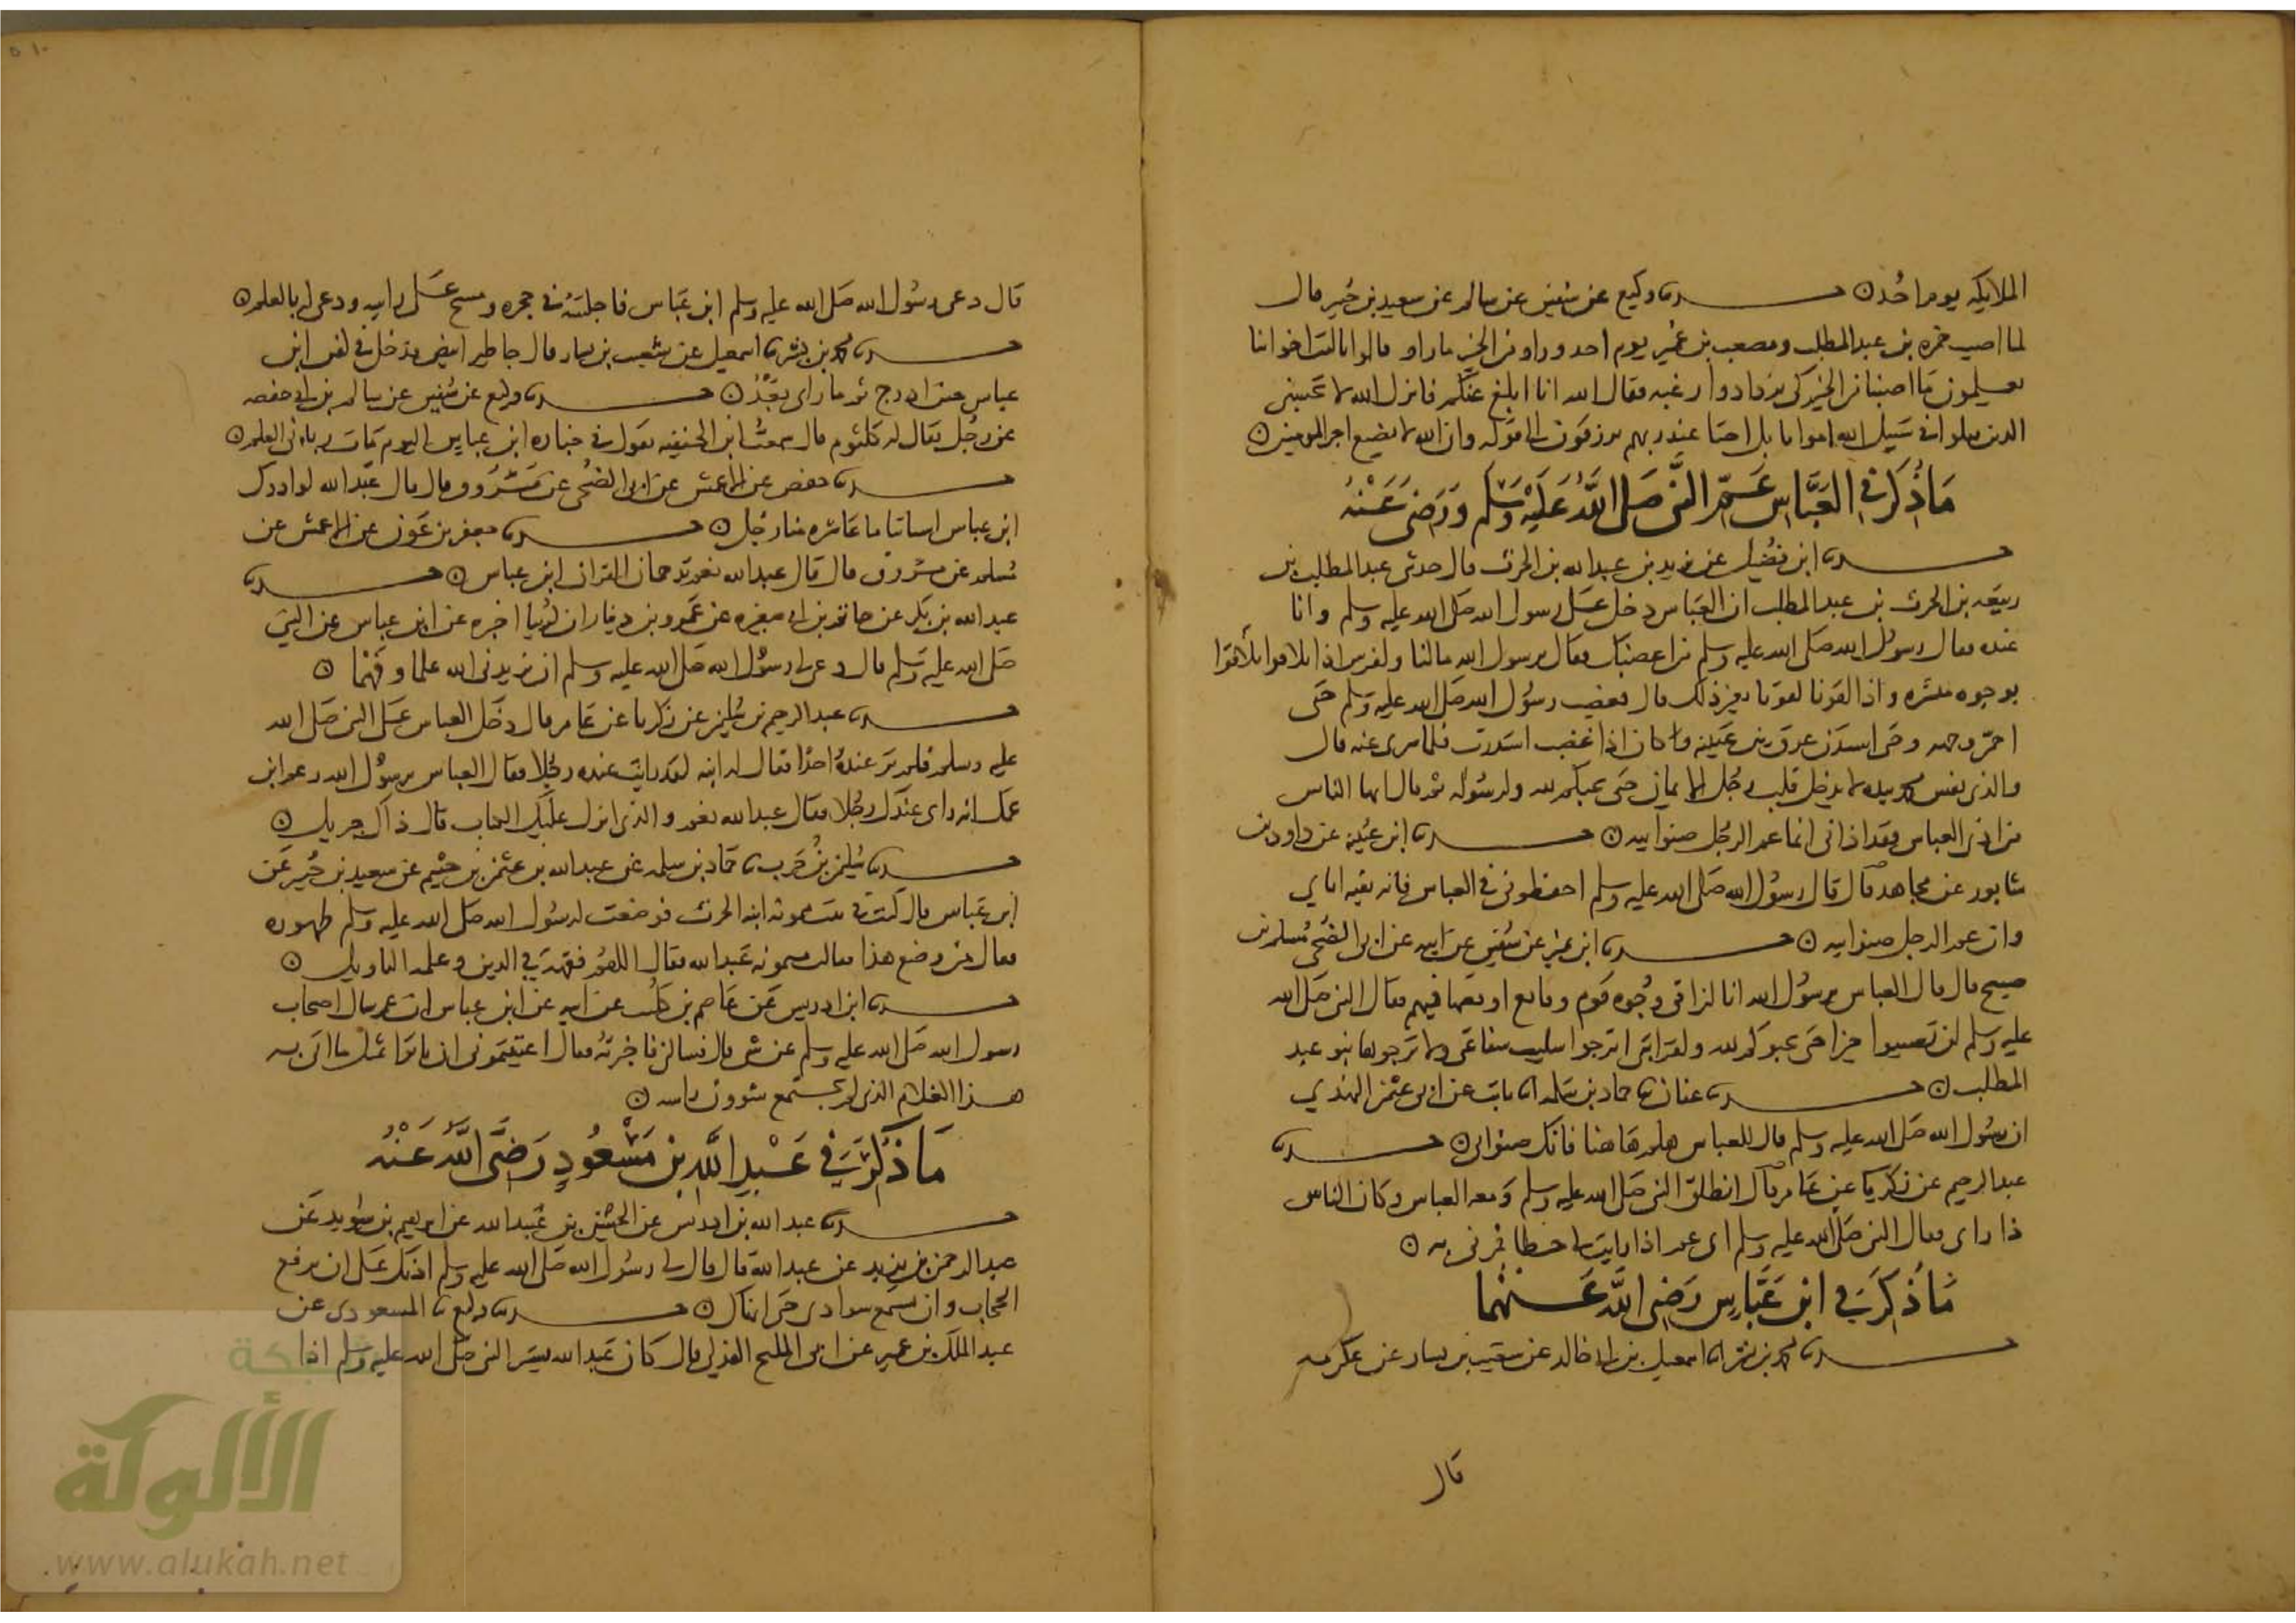 الملايكه يوم احد ○ حدثنا وكيع عن سفين عن سالم عن سعيد بن جبير قال
لما اصيب حمزه بن عبد المطلب ومصعب بن عمير يوم احد وراوا من الخير ما راوا قالوا يا ليت اخواننا
يعلمون ما اصبنا من الخير كي يزدادوا رغبه فقال الله انا ابلغ عنكم فانزل الله لا تحسبن
الذين قتلوا في سبيل الله امواتا بل احيا عند ربهم يرزقون الى قوله وان الله لا يضيع اجر المومنين ○
مَا ذُكِرَ في العَبَّاس عَمّ النَّبي صَلى اللَّهُ عَلَيْه وَسَلم وَرَضيَ عَنْهُ
حدثنا ابن فضيل عن يزيد بن عبد الله بن الحرث قال حدثني عبد المطلب بن
ربيعه بن الحرث بن عبد المطلب ان العباس دخل على رسول الله صلى الله عليه وسلم وانا
عنده فقال رسول الله صلى الله عليه وسلم من اغضبك فقال يرسول الله مالنا ولقريش اذا تلاقوا تلاقوا
بوجوه مبشره واذا لقونا لقونا بغير ذلك قال فغضب رسول الله صلى الله عليه وسلم حتى
احمر وجهه وحتى استدر عرق بين عينيه وكان اذا غضب استدرت فلما سرى عنه قال
والذي نفس محمد بيده لا يدخل قلب رجل الايمان حتى يحبكم لله ولرسوله ثم قال ايها الناس
من اذى العباس فقد اذاني انما عم الرجل صنو ابيه ○ حدثنا ابن عيينه عن داود بن
شابور عن مجاهد قال قال رسول الله صلى الله عليه وسلم احفظوني في العباس فانه بقيه اباي
وان عم الرجل صنو ابيه ○ حدثنا ابن نمير عن سفين عن ابيه عن ابي الضحى مسلم بن
صبيح قال قال العباس يرسول الله انا لنرى في وجوه قوم وقايع اوقعتها فيهم فقال النبي صلى الله
عليه وسلم لن يصيبوا خيرا حتى يحبوكم لله ولقرابتي اترجوا سليب شفاعتي ولا ترجوها بنو عبد
المطلب ○ حدثنا عفان نا حماد بن سلمه انا ثابت عن ابي عثمن النهدي
ان رسول الله صلى الله عليه وسلم قال للعباس هلم هاهنا فانك صنو ابي ○ حدثنا
عبد الرحيم عن زكريا عن عامر قال انطلق النبي صلى الله عليه وسلم ومعه العباس وكان الناس
ذا راى فقال النبي صلى الله عليه وسلم اى عم اذا رايت لي خطا فمرني به ○
مَا ذُكِرَ في ابن عَبَّاسٍ رَضي اللَّه عَنهُما
حدثنا محمد بن بشر نا اسمعيل بن ابي خالد عن شعيب بن يسار عن عكرمه
قال
قال دعى رسول الله صلى الله عليه وسلم ابن عباس فاجلسه في حجره ومسح على راسه ودعى له بالعلم ○
حدثنا محمد بن بشر نا اسمعيل عن شعيب بن يسار قال جا طير ابيض فدخل في كفن ابن
عباس حين ادرج ثم ما راى بعد ○ حدثنا وكيع عن سفين عن سالم بن ابي حفصه
عن رجل يقال له كلثوم قال سمعت ابن الحنفيه يقول في جنازه ابن عباس اليوم مات رباني العلم ○
حدثنا حفص عن الاعمش عن ابي الضحى عن مسروق قال قال عبد الله لو ادرك
ابن عباس اسناننا ما عاشره منا رجل ○ حدثنا جعفر بن عون عن الاعمش عن
مسلم عن مسروق قال قال عبد الله نعم ترجمان القران ابن عباس ○ حدثنا
عبد الله بن بكر عن حاتم بن ابي صغيره عن عمرو بن دينار ان كريبا اخبره عن ابن عباس عن النبي
صلى الله عليه وسلم قال دعى لي رسول الله صلى الله عليه وسلم ان يزيدني الله علما وفهما ○
حدثنا عبد الرحيم بن سليمن عن زكريا عن عامر قال دخل العباس على النبي صلى الله
عليه وسلم فلم ير عنده احدا فقال له ابنه لقد رايت عنده رجلا فقال العباس يرسول الله زعم ابن
عمك انه راى عندك رجلا فقال عبد الله نعم والذي انزل عليك الكتاب قال ذاك جبريل ○
حدثنا سليمن بن حرب نا حماد بن سلمه عن عبد الله بن عثمن بن خثيم عن سعيد بن جبير عن
ابن عباس قال كنت في بيت ميمونه ابنه الحرث فوضعت لرسول الله صلى الله عليه وسلم طهوره
فقال من وضع هذا فقالت ميمونه عبد الله فقال اللهم فقهه في الدين وعلمه التاويل ○
حدثنا ابن ادريس عن عاصم بن كليب عن ابيه عن ابن عباس ان عمر سال اصحاب
رسول الله صلى الله عليه وسلم عن شي قال فسالني فاخبرته فقال اعييتموني ان تاتوا بمثل ما اتى به
هذا الغلام الذي لم يجتمع شوون راسه ○
مَا ذُكِرَ في عَبْدِ اللَّهِ بن مَسْعُودٍ رَضيَ اللَّهُ عَنْهُ
حدثنا عبد الله بن ادريس عن الحسن بن عبيد الله عن ابرهيم بن سويد عن
عبد الرحمن بن يزيد عن عبد الله قال قال لي رسول الله صلى الله عليه وسلم اذنك على ان يرفع
الحجاب وان تسمع سوادى حتى انهاك ○ حدثنا وكيع نا المسعودى عن
عبد الملك بن عمير عن ابي المليح الهذلي قال كان عبد الله يستر النبي صلى الله عليه وسلم اذا
شبكة
الألوكة
www.alukah.net